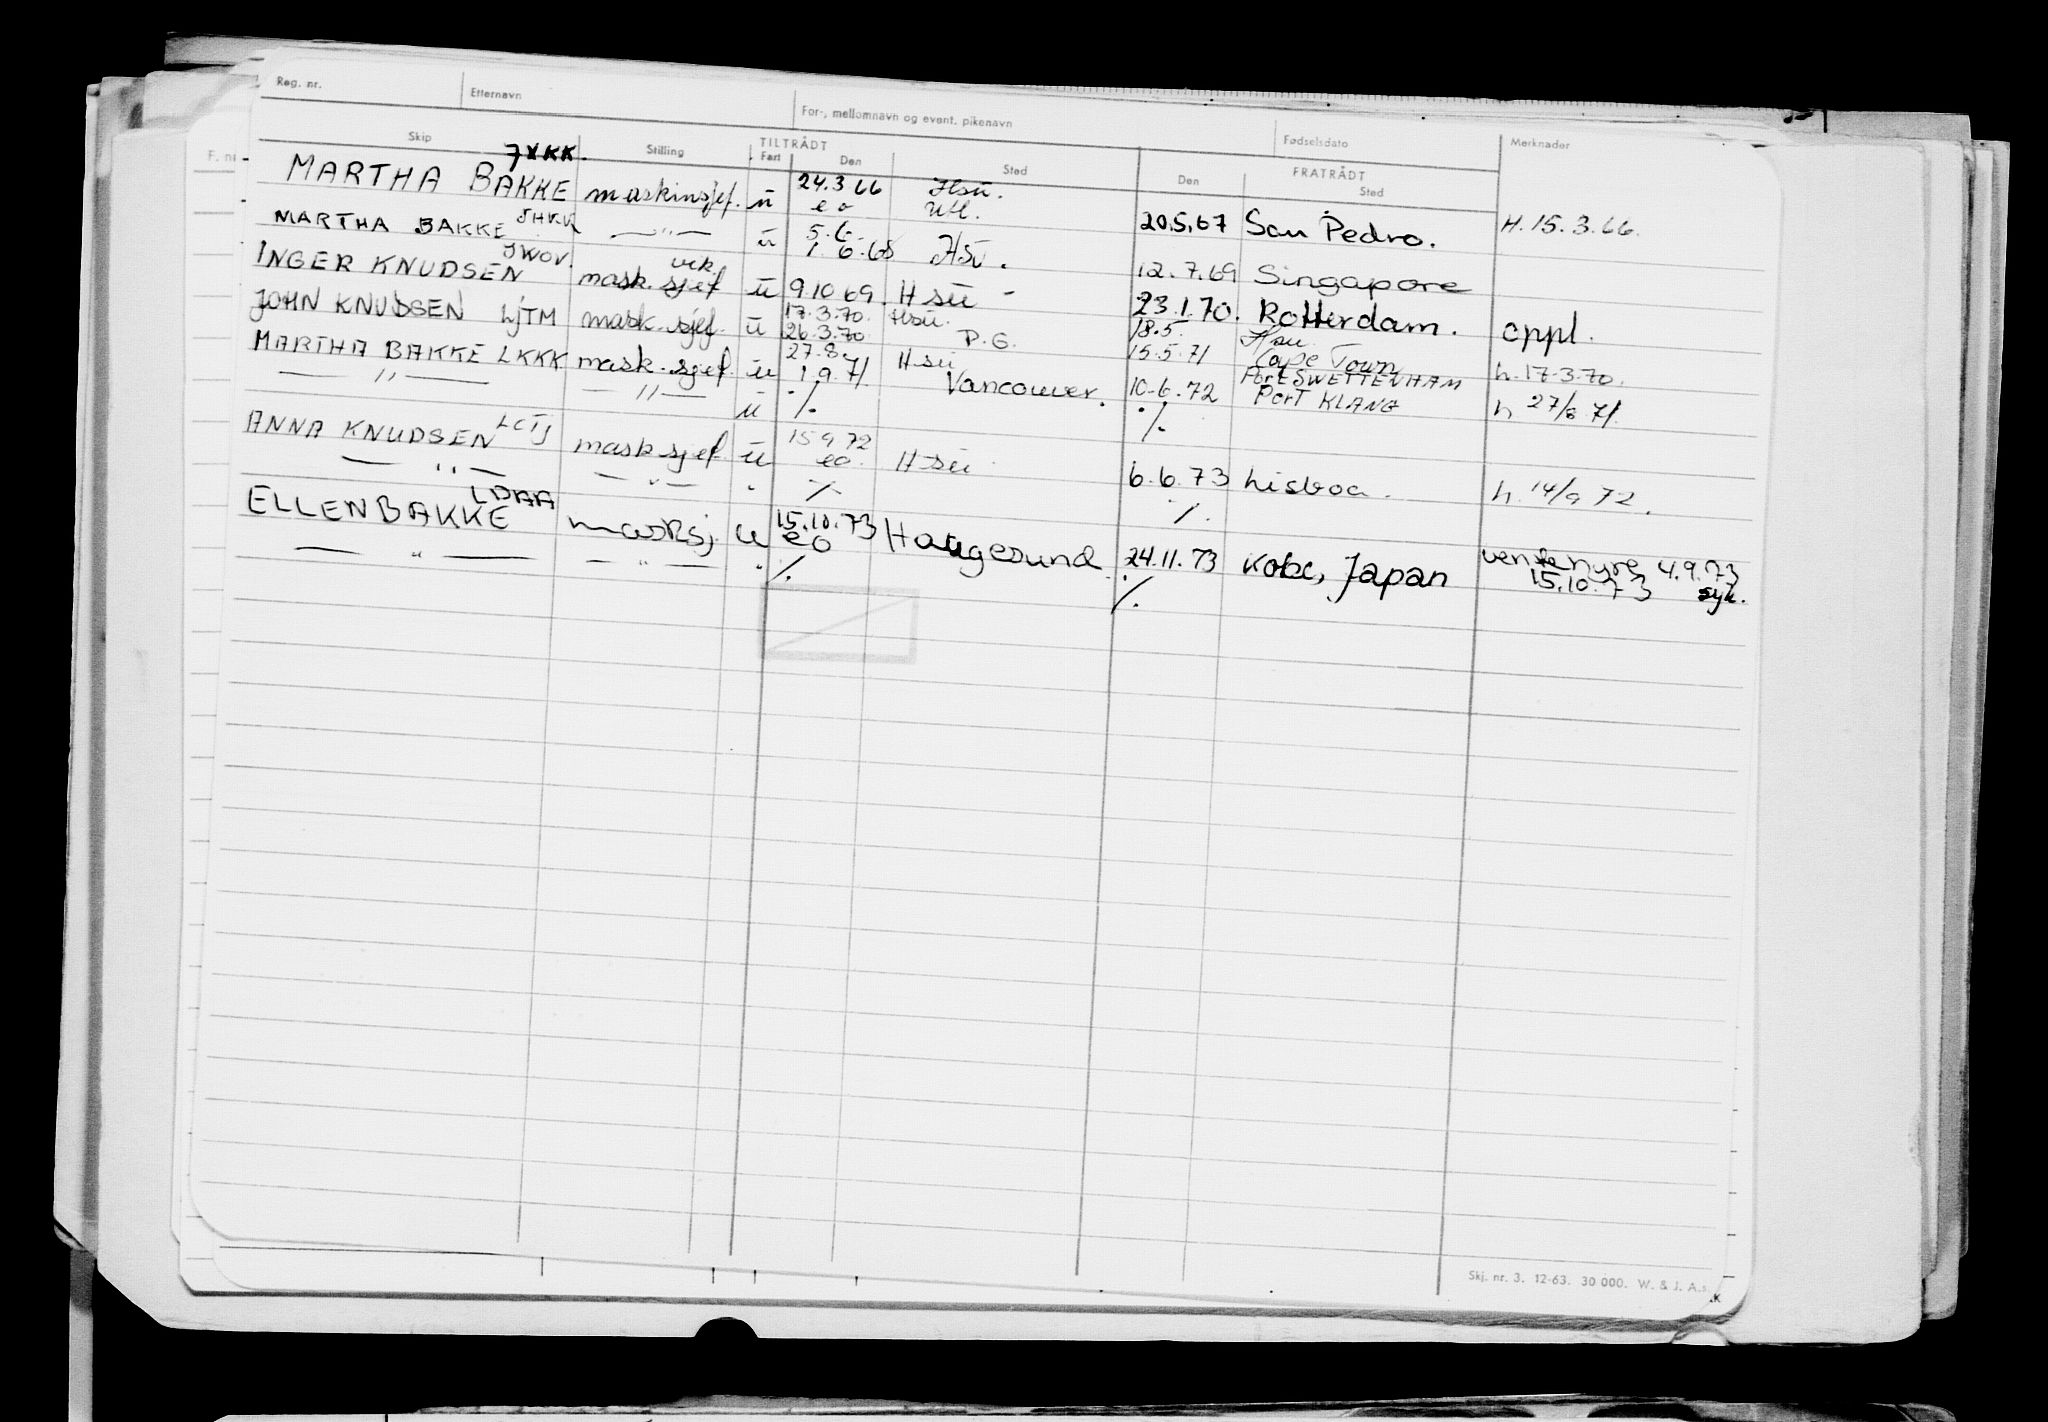 Reg. nr. Etternavn For-, mellomnavn og event. pikenavn Fødselsdato Merknader
Skip Stilling TILTRÅDT Fart Den Sted FRATRÅDT Den Sted
JXKK.
MARTHA BAKKE maskinsjef. ü 24.3 66 Hsü.
eo utl. 20.5.67 San Pedro. H. 15.3.66.
MARTHA BAKKE —"— ü 5.6
1.6.68 HSÜ. 12.7.69 Singapore
JWOV. vik.
INGER KNUDSEN mask.sjef ü 9.10 69. Hsü - 23.1.70. Rotterdam. oppl.
JOHN KNUDSEN LJTM mask.sjef. ü 17.3.70. Hsü. 18.5. Hsü.
26.3.70 P.G. 15.5.71 Cape Town h. 17.3.70.
MARTHA BAKKE LKKK mask.sjef. ü 27.8. Hsü
1.9.71 Vancouver. 10.6.72 PORT SWETTENHAM h 27/8 71.
— " — — " — ü ./. ./. PORT KLANG
LCTJ
ANNA KNUDSEN mask.sjef. ü 15 9 72
eo. Hsü 6.6.73 Lisboa. h. 14/9 72.
— " — — " — " ./. ./.
LDAA
ELLEN BAKKE masksj. u 15.10.73
eo Haugesund 24.11.73 Kobe, Japan venstre nyre 4.9.73
15.10.73 syk.
— " — — " — " ./. ./.
F. nr
Skj. nr. 3. 12-63. 30 000. W. & J. A.s.